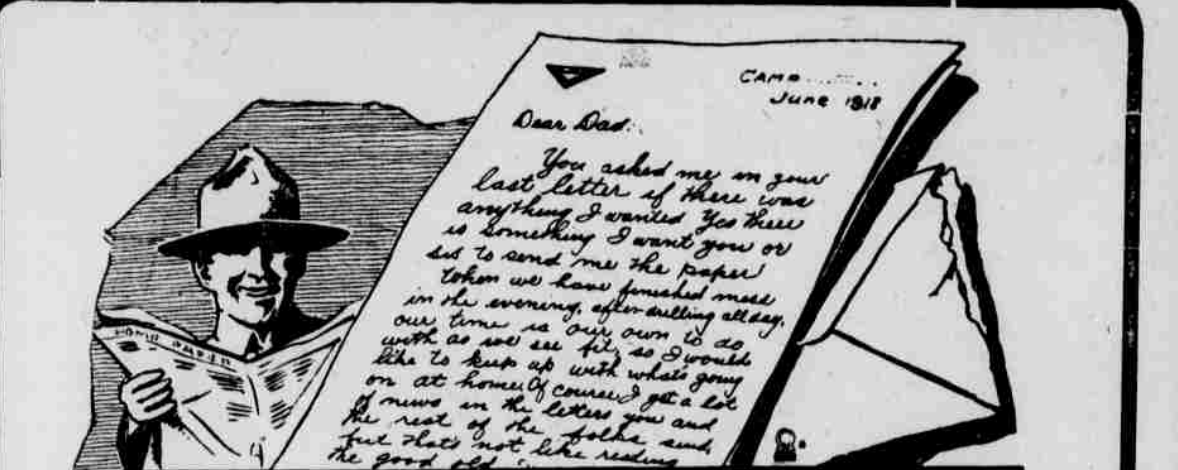 CAMP
June 1918
Dear Dad:
You asked me in your
last letter if there was
anything I wanted Yes there
is something I want you or
sis to send me the paper
When we have finished mess
in the evening, after drilling all day,
our time is our own to do
with as we see fit, so I would
like to keep up with whats going
on at home. Of course I get a lot
of news in the letters you and
the rest of the folks send,
but thats not like reading
the good old
HOME PAPER